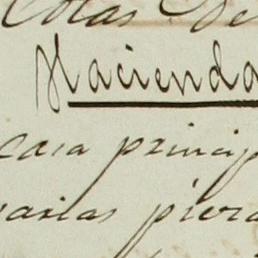 Cotas De
Hacienda
casa princip
varias pieza